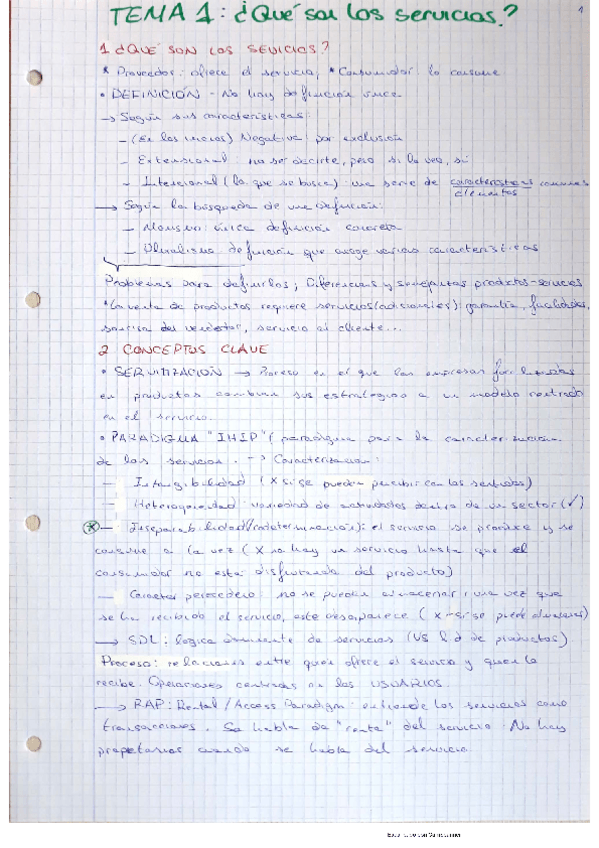 TEMA 1: ¿Qué son los servicios? 1
1 ¿QUÉ SON LOS SEVICIOS?
* Proveedor: ofrece el servicio, * Consumidor: lo consume
• DEFINICIÓN - No hay definición única
→ Según sus características:
– (En los inicios) Negativa: por exclusión
– Extensional: no se decirte, pero si lo veo, sí
– Intensional (la que se busca): una serie de características comunes
elementos
→ Según la búsqueda de una definición:
– Monismo: única definición concreta
– Pluralismo: definición que acoge varias características
Problemas para definirlos; Diferencias y semejantes productos-servicios
*La venta de productos requiere servicios (adicionales): garantía, facilidades,
sonrisa del vendedor, servicio al cliente...
2 CONCEPTOS CLAVE
• SERVITIZACIÓN → Proceso en el que las empresas
en productos cambian sus estrategias a un modelo centrado
en el servicio.
• PARADIGMA "IHIP" (paradigma para la caracterización
de los servicios. → Caracterización:
– Intangibilidad (X si se pueden percibir con los sentidos)
– Heterogeneidad: variedad de actividades dentro de un sector (✓)
* – Inseparabilidad (codeterminación): el servicio se produce y se
consume a la vez (X no hay un servicio hasta que el
consumidor no está disfrutando del producto)
– Carácter perecedero: no se pueden almacenar, una vez que
se ha recibido el servicio, este desaparece (X - si se puede almacenar)
→ SDL: lógica dominante de servicios (VS l.d de productos)
Proceso: relaciones entre quien ofrece el servicio y quien lo
recibe. Operaciones centradas en los USUARIOS.
→ RAP: Rental / Access Paradigm: entiende los servicios como
transacciones. Se habla de "renta" del servicio. No hay
propietarios cuando se habla del servicio.